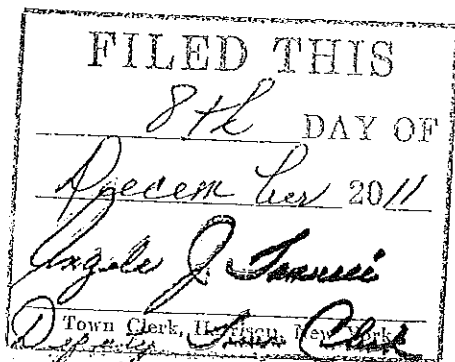 FILED THIS
8th DAY OF
December 2011
Angela J.
Town Clerk, Harrison, New York
Deputy Town Clerk